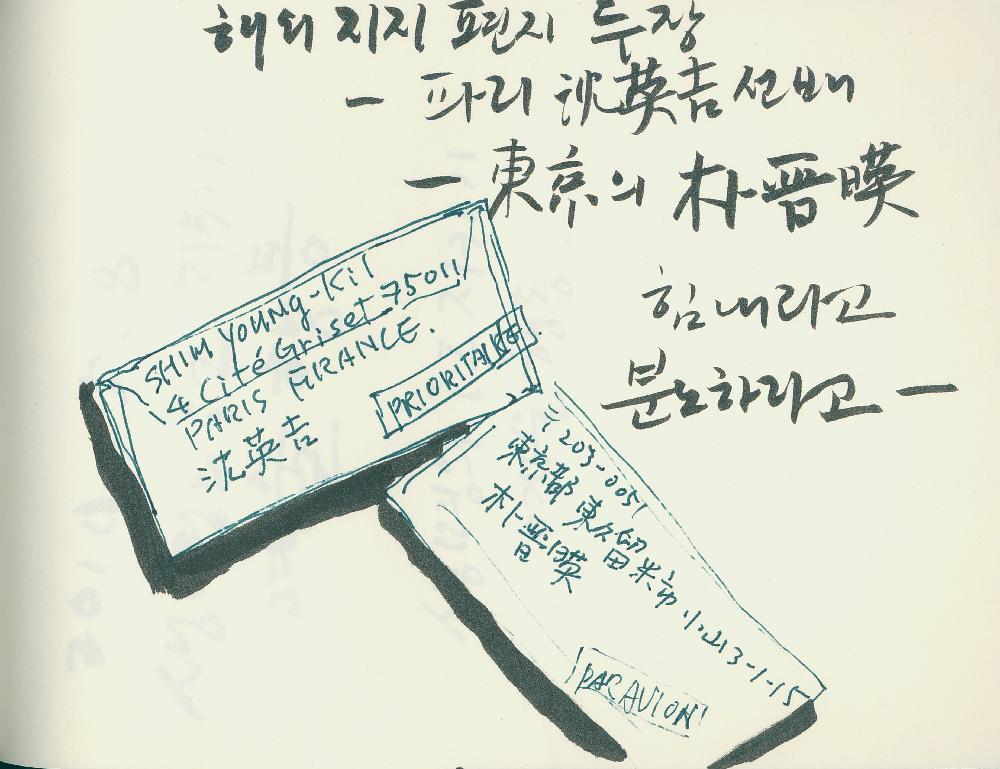 해외 지지 편지 두장
- 파리 沈英吉 선배
- 東京의 朴晋暎
힘내라고
분노하라고 -
SHIM YOUNG-Kil
4 Cité Griset 75011
PARIS FRANCE.
沈英吉
PRIORITAIRE
〒203-0051
東京都 東久留米市 小山3-1-15
朴晋暎
PAR AVION